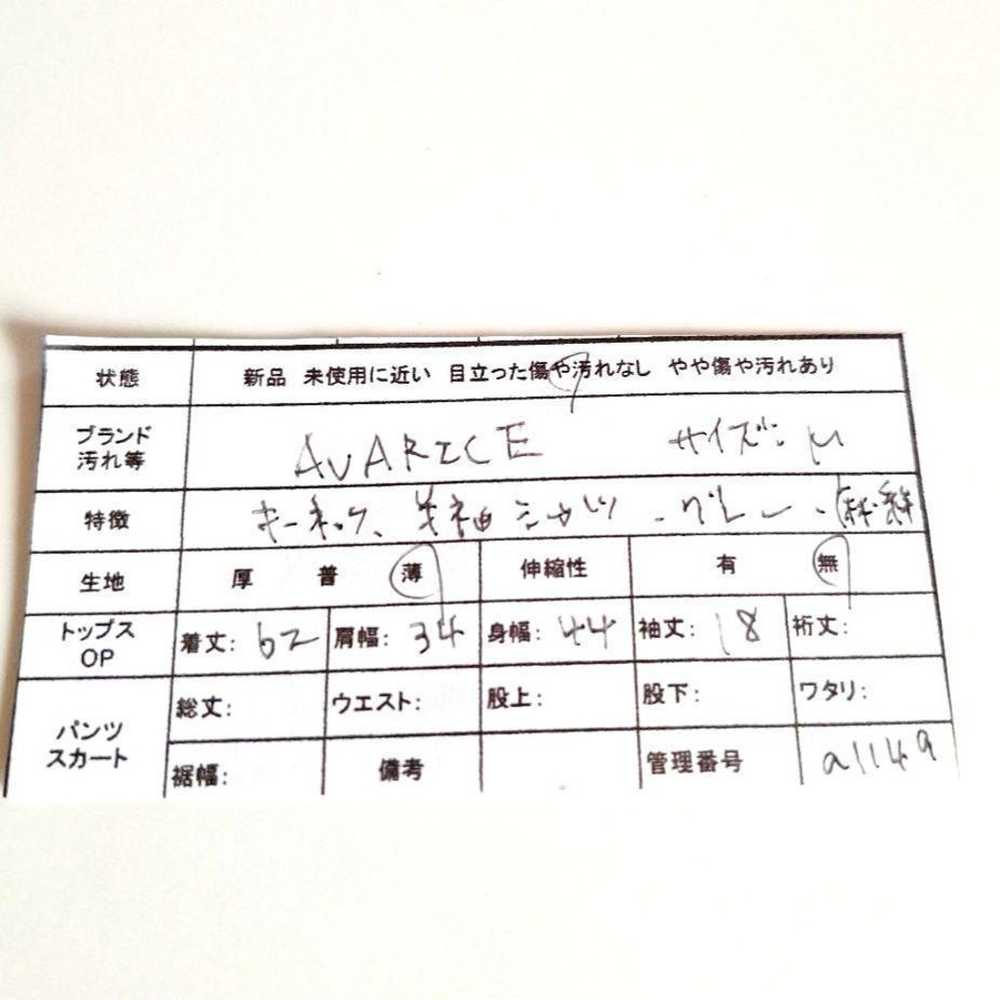 状態 新品 未使用に近い 目立った傷や汚れなし やや傷や汚れあり
ブランド
汚れ等 AVARICE サイズ: M
特徴 キーネック、半袖シャツ グレー
生地 厚 普 薄 伸縮性 有 無
トップス
OP 着丈: 62 肩幅: 34 身幅: 44 袖丈: 18 裄丈:
パンツ
スカート 総丈: ウエスト: 股上: 股下: ワタリ:
裾幅: 備考 管理番号 a1149